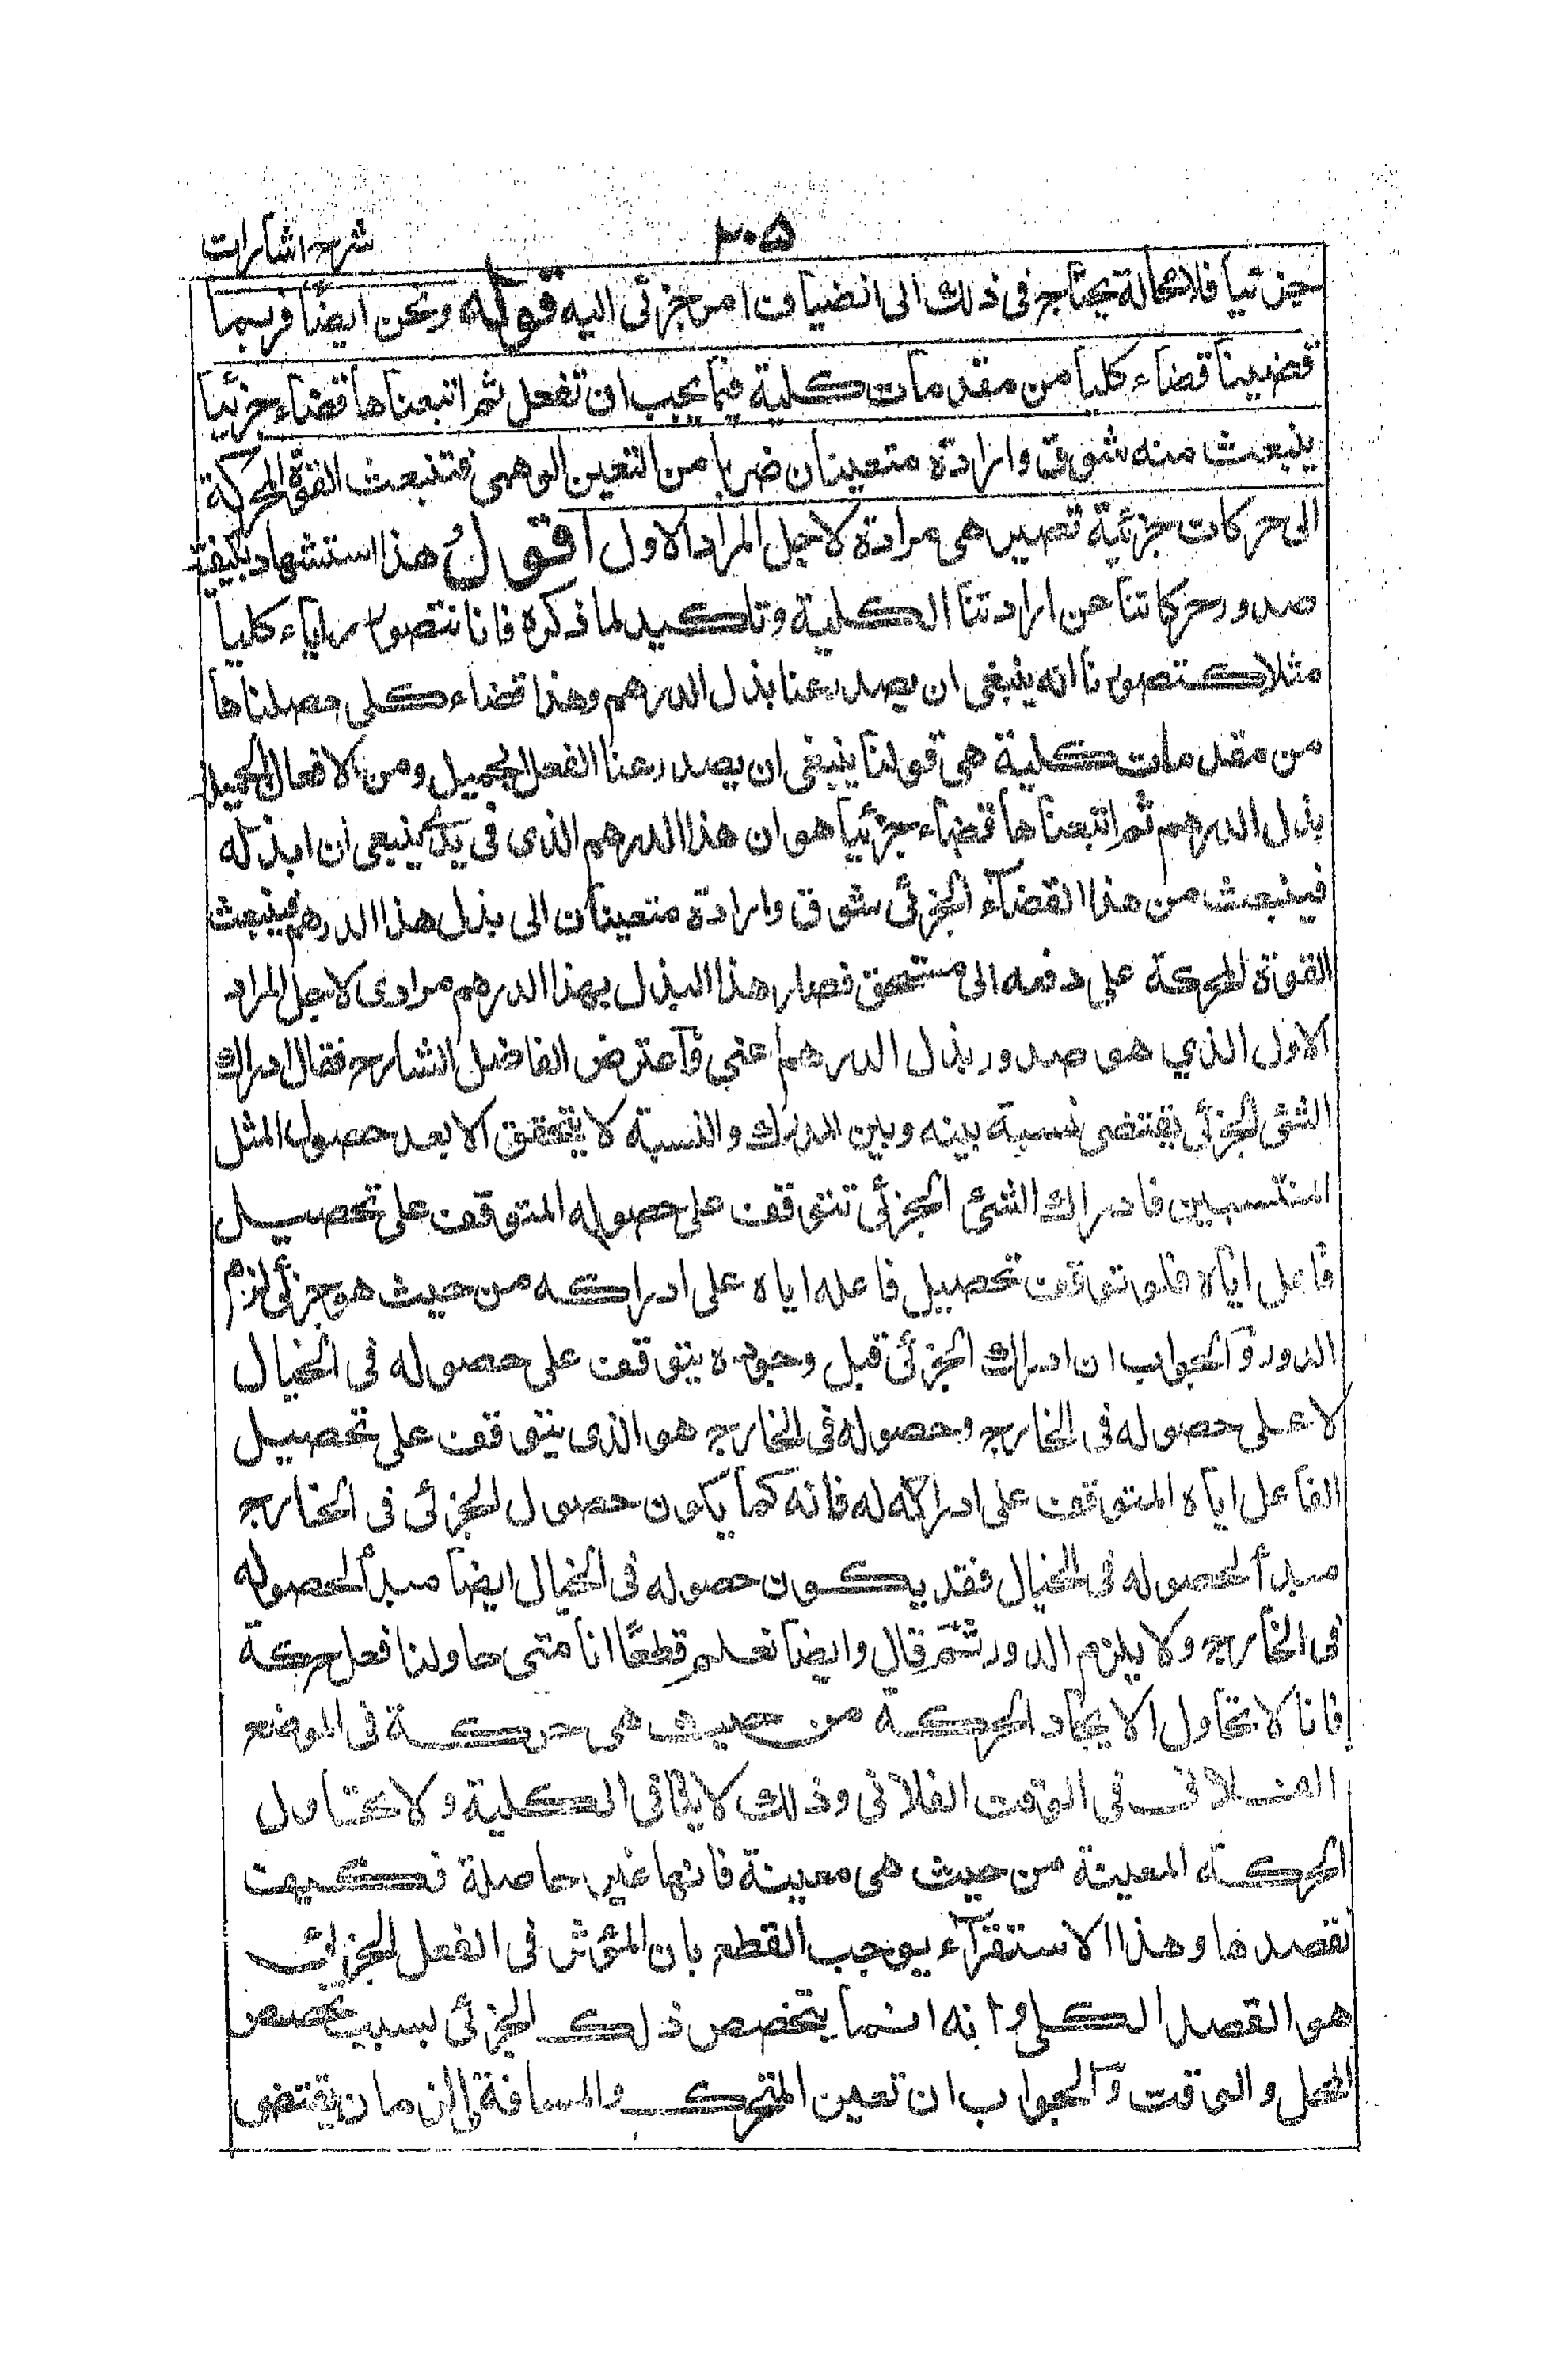 ٢٠٥
شرح اشارات
جزئيا فلا محالة يحتاج فى ذلك الى انضياف امر جزئى اليه قوله ونحن ايضًا فربما
قضينا قضاء كليا من مقدمات كلية فيما يجب ان تفعل ثم اتبعناها قضاء جزئيا
ينبعث منه شوق وارادة متعينان ضربا من التعين الوهمى فتنبعث القوة المحركة
الى حركات جزئية تصير هى مرادة لاجل المراد الاول اقول هذا استشهاد بكيفية
صدور حركاتنا عن ارادتنا الكلية وتاكيد لما ذكره فانا نتصور رايا كليا
مثلا كتصورنا انه ينبغى ان يصدر عنا بذل الدرهم وهذا قضاء كلى حصلناها
من مقدمات كلية هى قولنا ينبغى ان يصدر عنا الفعل الجميل ومن الافعال الجميل
بذل الدرهم ثم اتبعناها قضاء جزئيا هو ان هذا الدرهم الذى فى يدى ينبغى ان ابذله
فينبعث من هذا القضآء الجزئى شوق وارادة متعينان الى بذل هذا الدرهم فينبعث
القوة المحركة على دفعه الى مستحق فصار هذا البذل بهذا الدرهم مرادى لاجل المراد
الاول الذي هو صدور بذل الدرهم عنى وآعترض الفاضل الشارح فقال ادراك
الشئ الجزئى يقتضى نسبة بينه وبين المدرك والنسبة لا يتحقق الا بعد حصول المثل
المنتسبين فادراك الشئ الجزئى تتوقف على حصوله المتوقف على تحصيل
فاعل اياه فلو توقف تحصيل فاعله اياه على ادراكه من حيث هو جزئى لزم
الدور وٓالجواب ان ادراك الجزئى قبل وجوده يتوقف على حصوله فى الخيال
لا على حصوله فى الخارج وحصوله فى الخارج هو الذى يتوقف على تحصيل
الفاعل اياه المتوقف على ادراكه له فانه كما يكون حصول الجزئى فى الخارج
مبدأ لحصوله فى الخيال فقد يكون حصوله فى الخيال ايضا مبدأ لحصوله
فى الخارج ولا يلزم الدور ثم قال وايضا نعلم قطعًا انا متى حاولنا فعل حركة
فانا لا نحاول الا يجاد الحركة من حيث هى حركة فى الموضع
الفلانى فى الوقت الفلانى وذلك لا ينافى الكلية ولا نحاول
الحركة المعينة من حيث هى معينة فانها غير حاصلة فكيف
نقصدها وهذا الاستقرآء يوجب القطع بان المؤثر فى الفعل الجزئى
هو القصد الكلى وانه انما يتخصص ذلك الجزئى بسبب تخصص
المحل والوقت وٓالجواب ان تعين المتحرك والمسافة والزمان يقتضى